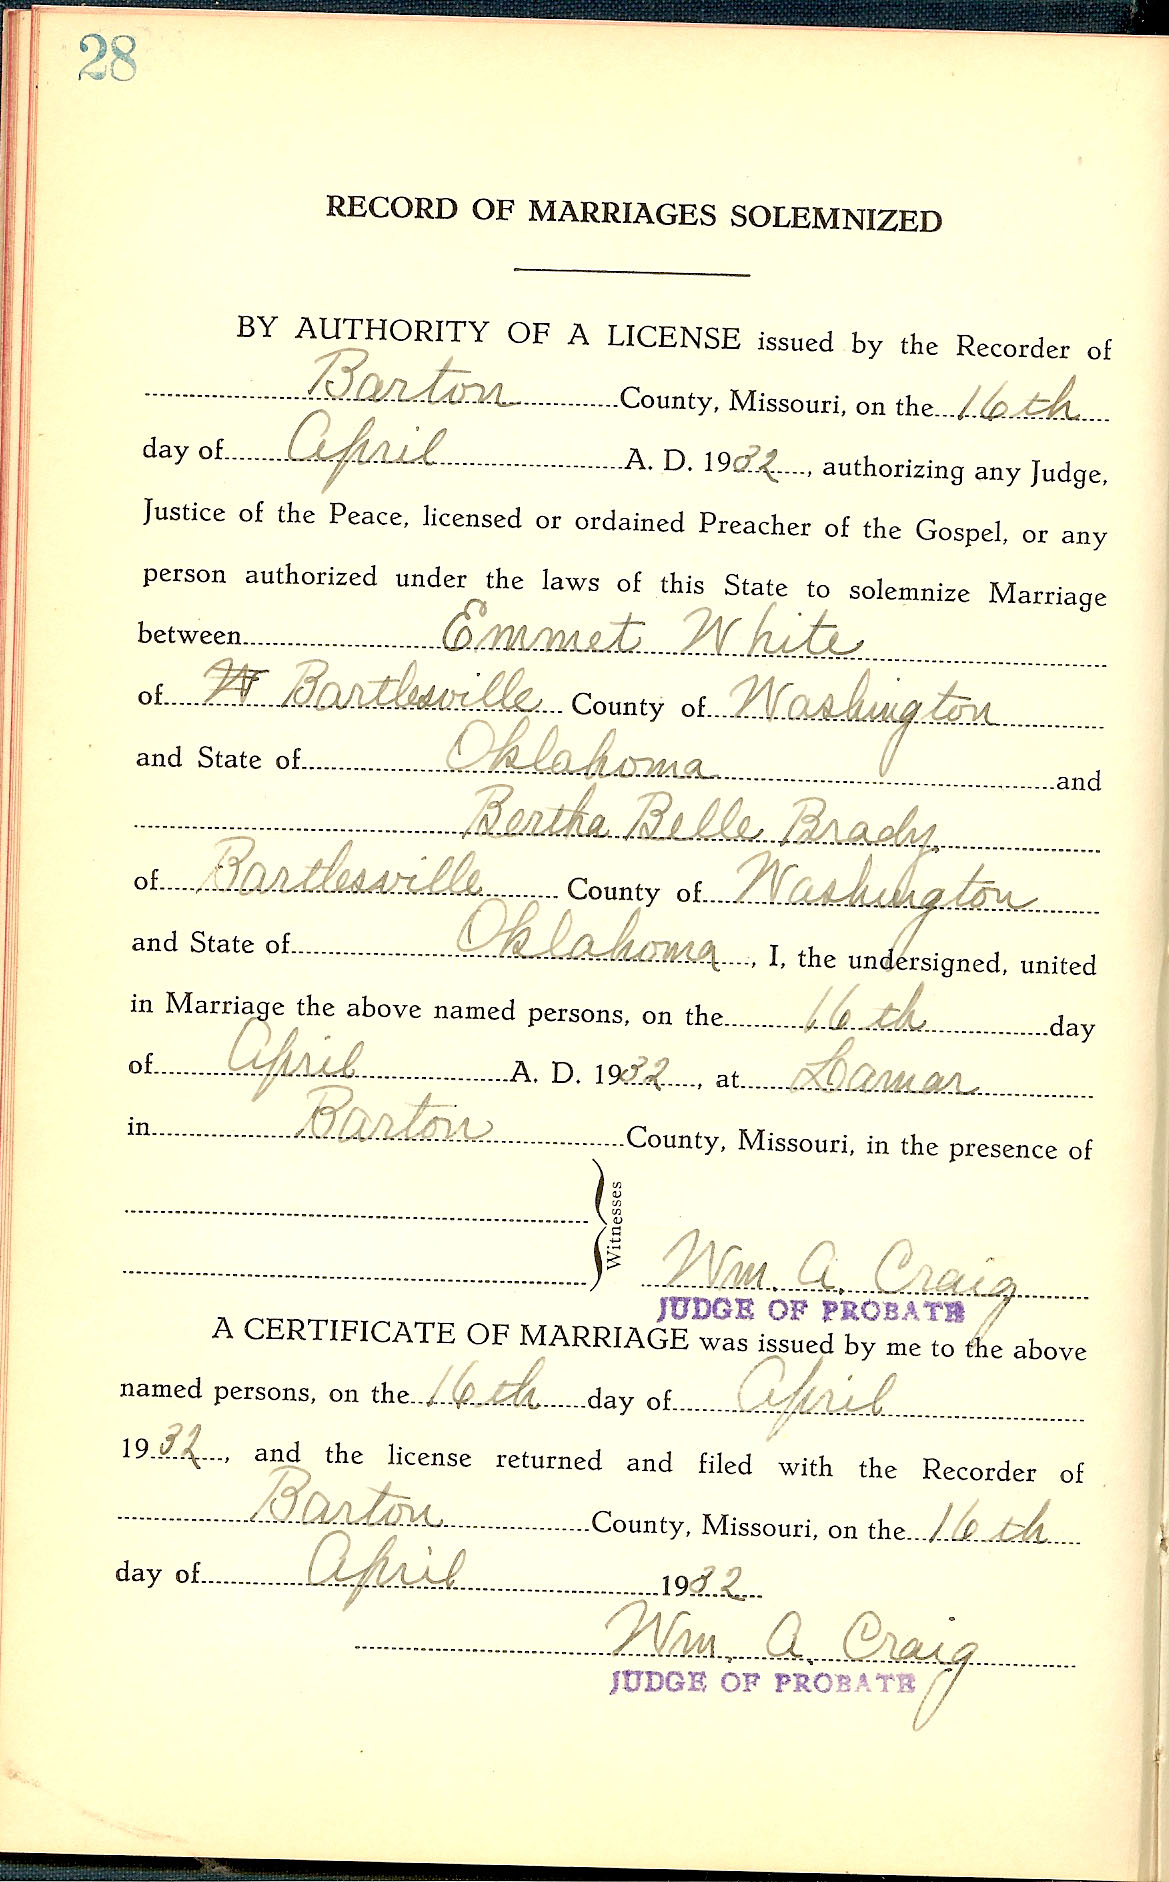 28
RECORD OF MARRIAGES SOLEMNIZED
BY AUTHORITY OF A LICENSE issued by the Recorder of
Barton County, Missouri, on the 16th
day of April A. D. 1932, authorizing any Judge,
Justice of the Peace, licensed or ordained Preacher of the Gospel, or any
person authorized under the laws of this State to solemnize Marriage
between Emmet White
of W Bartlesville County of Washington
and State of Oklahoma and
Bertha Belle Brady
of Bartlesville County of Washington
and State of Oklahoma, I, the undersigned, united
in Marriage the above named persons, on the 16th day
of April A. D. 1932, at Lamar
in Barton County, Missouri, in the presence of
Witnesses
Wm. A. Craig
JUDGE OF PROBATE
A CERTIFICATE OF MARRIAGE was issued by me to the above
named persons, on the 16th day of April
1932, and the license returned and filed with the Recorder of
Barton County, Missouri, on the 16th
day of April 1932
Wm. A. Craig
JUDGE OF PROBATE